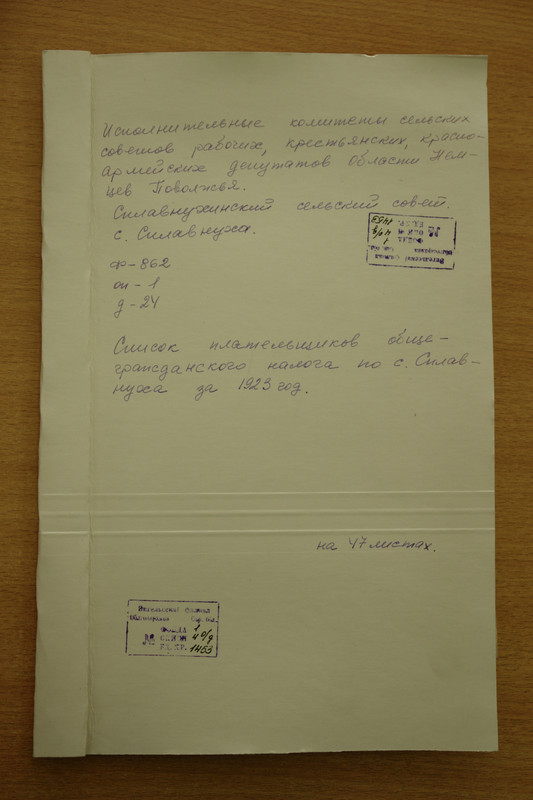 Исполнительные комитеты сельских
советов рабочих, крестьянских, красно-
армейских депутатов области Нем-
цев Поволжья.
Сплавнухинский сельский совет.
с. Сплавнуха.
ф-862
оп-1
д-24
Список плательщиков обще-
гражданского налога по с. Сплав-
нуха за 1923 год.
на 47 листах.
1
ОПИСИ 40/9
ЕД.ХР. 1453